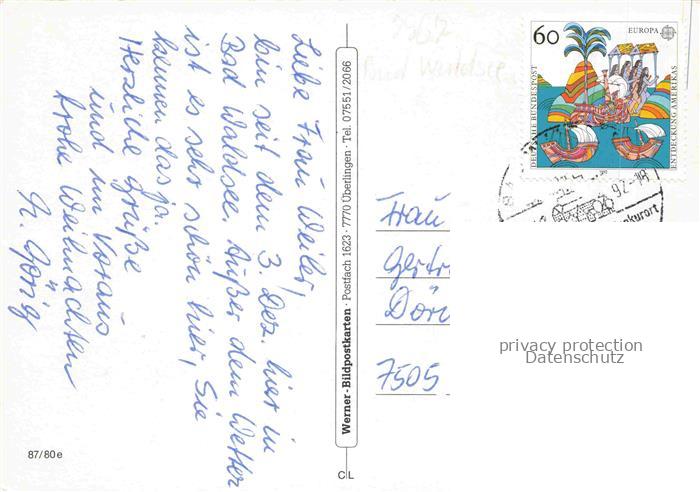 Liebe Frau Weiler,
bin seit dem 3. Dez. hier in
Bad Waldsee Außer dem Wetter
ist es sehr schön hier, Sie
kennen das ja.
Herzliche Grüße
und im Voraus
frohe Weihnachten
N. Görig
87/80e
Werner-Bildpostkarten · Postfach 1623 · 7770 Überlingen · Tel. 07551/2066
C L
7967
Bad Waldsee
60
EUROPA
DEUTSCHE BUNDESPOST
ENTDECKUNG AMERIKAS
92-18
kurort
Frau
Gertr
Dör
7505
privacy protection
Datenschutz